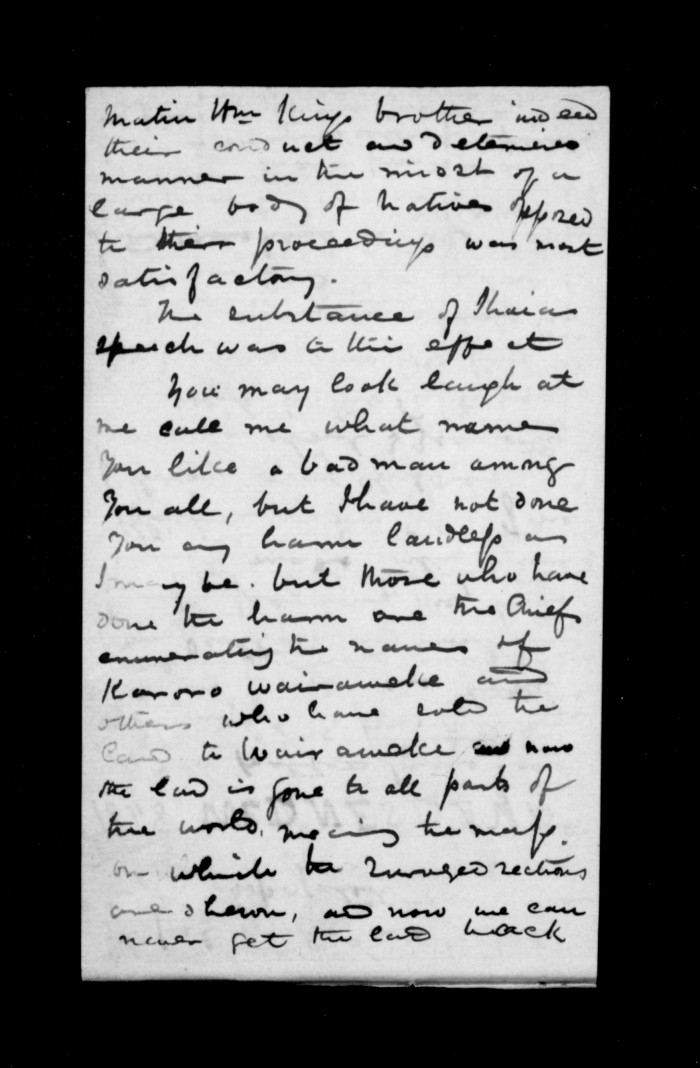 Matiu Wm Kings brother indeed
their conduct and determined
manner in the midst of a
large body of Natives opposed
to their proceedings was most
satisfactory.
The substance of Ihaias
speech was to this effect
You may look laugh at
me call me what name
You like a bad man among
You all, but I have not done
You any harm landless as
I may be. but those who have
done the harm are the Chiefs
enumerating the names of
Karoro wairaweke and
others who have sold the
land to Wairaweke and now
the land is gone to all parts of
the world, meaning the maps.
on which the surveyed sections
are shewn, and now we can
never get the land back